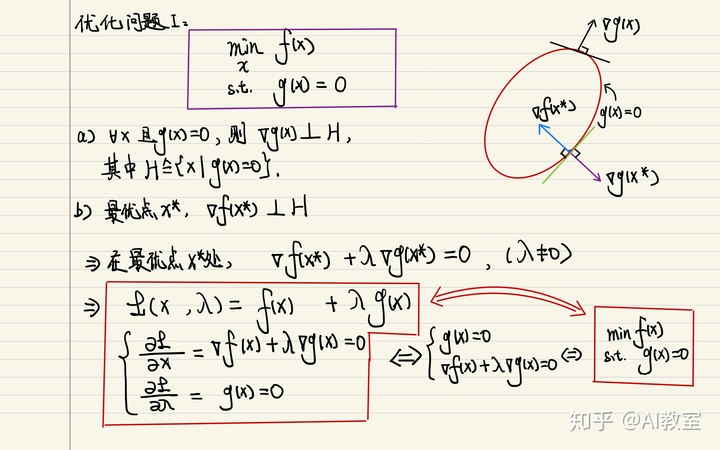 优化问题I:
min f(x)
x
s.t. g(x) = 0
a) ∀x 且g(x)=0, 则 ∇g(x)⊥H,
其中 H≜{x|g(x)=0}.
b) 最优点 x*, ∇f(x*)⊥H
⇒ 在最优点x*处, ∇f(x*) + λ∇g(x*) = 0, (λ≠0)
⇒ ℒ(x, λ) = f(x) + λg(x)
∂ℒ/∂x = ∇f(x)+λ∇g(x)=0
∂ℒ/∂λ = g(x)=0
⇔ { g(x)=0
∇f(x)+λ∇g(x)=0 ⇔
min f(x)
s.t. g(x)=0
∇g(x)
g(x)=0
∇f(x*)
∇g(x*)
知乎 @AI教室